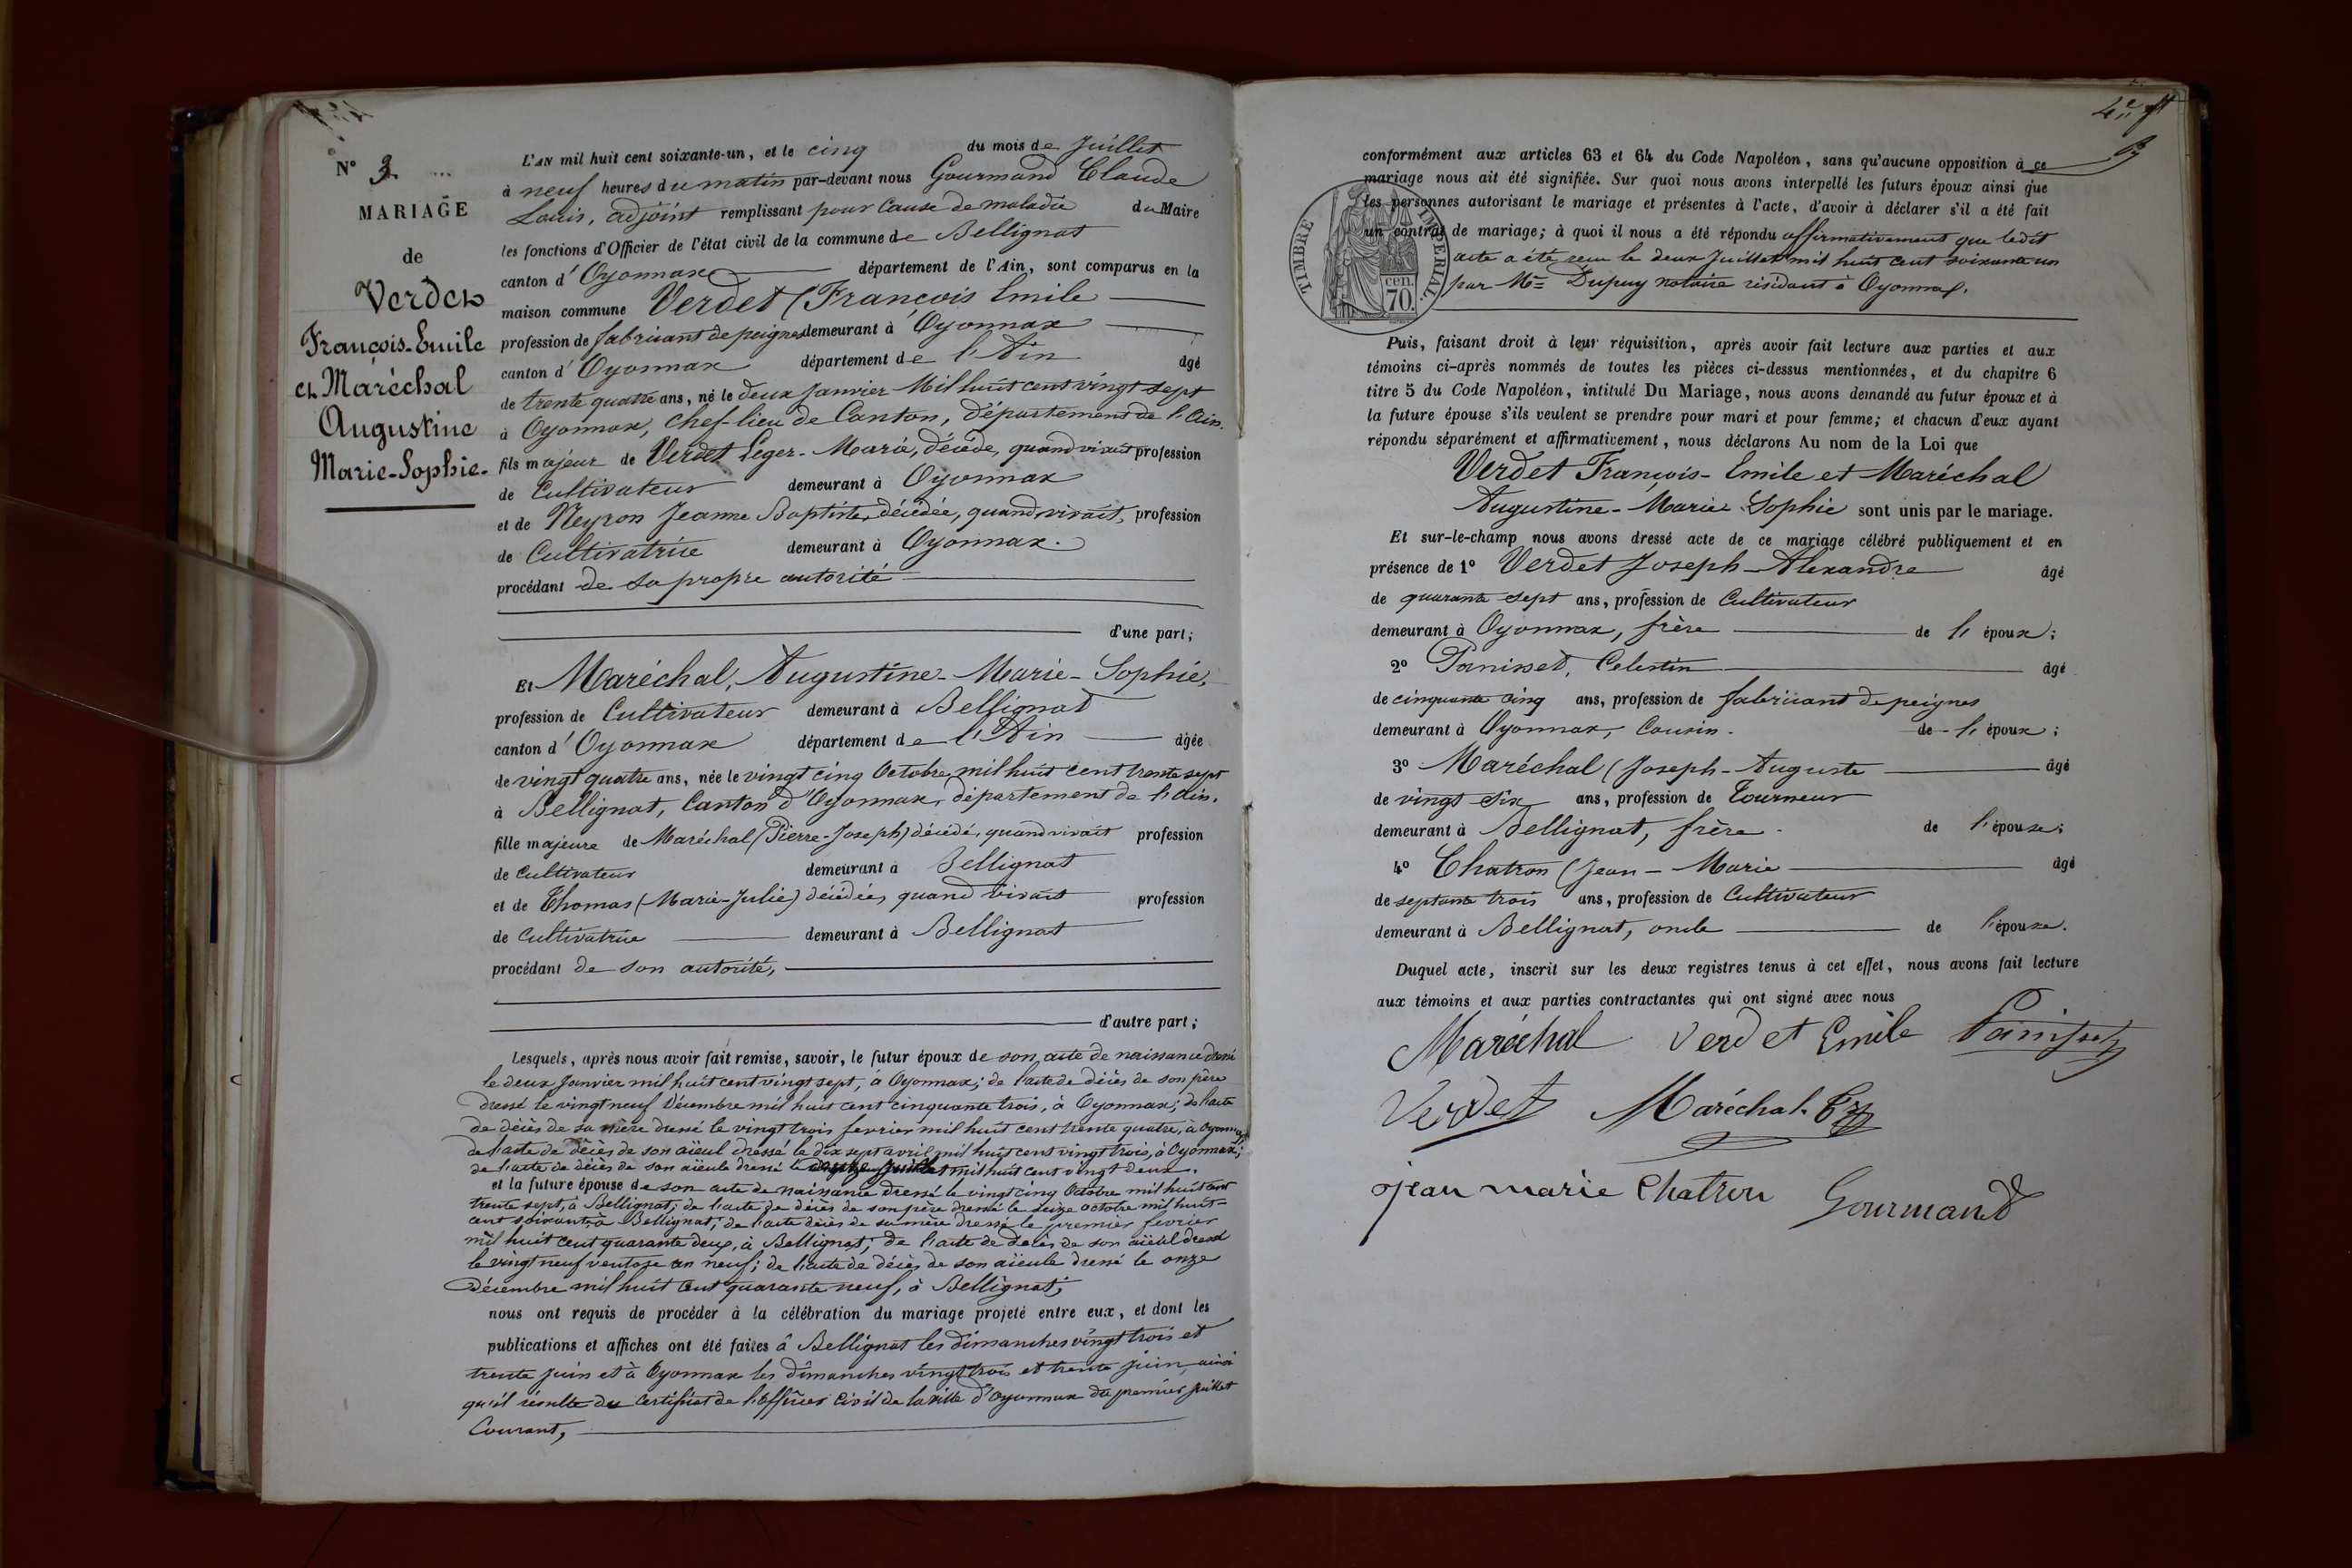 N° 3
MARIAGE
de
Verdet
François-Emile
et Maréchal
Augustine
Marie-Sophie-
L'AN mil huit cent soixante-un, et le cinq du mois de Juillet
à neuf heures du matin par-devant nous Gourmand Claude
Louis, adjoint remplissant pour cause de maladie du Maire
les fonctions d'Officier de l'état civil de la commune de Bellignat
canton d'Oyonnax département de l'Ain, sont comparus en la
maison commune Verdet (François Emile
profession de fabricant de peignes demeurant à Oyonnax
canton d'Oyonnax département de l'Ain âgé
de trente quatre ans, né le deux Janvier Mil huit cent vingt sept
à Oyonnax, chef-lieu de Canton, Département de l'Ain.
fils majeur de Verdet Leger-Marie, décédé, quand vivait profession
de Cultivateur demeurant à Oyonnax
et de Neyron Jeanne Baptiste, décédée, quand vivait, profession
de Cultivatrice demeurant à Oyonnax.
procédant de sa propre autorité
d'une part;
Et Maréchal, Augustine-Marie-Sophie,
profession de Cultivateur demeurant à Bellignat
canton d'Oyonnax département de l'Ain âgée
de vingt quatre ans, née le vingt cinq Octobre mil huit cent trente sept
à Bellignat, Canton d'Oyonnax, département de l'Ain.
fille majeure de Maréchal (Pierre-Joseph) décédé, quand vivait profession
de Cultivateur demeurant à Bellignat
et de Thomas (Marie-Julie) décédée, quand vivait profession
de Cultivatrice demeurant à Bellignat
procédant de son autorité,
d'autre part;
Lesquels, après nous avoir fait remise, savoir, le futur époux de son acte de naissance dressé
le deux Janvier mil huit cent vingt sept, à Oyonnax; de l'acte de décès de son père
dressé le vingt neuf Décembre mil huit cent cinquante trois, à Oyonnax; de l'acte
de décès de sa mère dressé le vingt trois fevrier mil huit cent trente quatre, à Oyonnax;
de l'acte de décès de son aïeul dressé le dix sept avril mil huit cent vingt trois, à Oyonnax;
de l'acte de décès de son aïeule dressé le mil huit cent vingt deux.
et la future épouse de son acte de naissance dressé le vingt cinq Octobre mil huit cent
trente sept, à Bellignat; de l'acte de décès de son père dressé le seize octobre mil huit-
cent soixante, à Bellignat; de l'acte décès de sa mère dressé le premier fevrier
mil huit cent quarante deux, à Bellignat; de l'acte de décès de son aïeul dressé
le vingt neuf ventose an neuf; de l'acte de décès de son aïeule dressé le onze
décembre mil huit cent quarante neuf, à Bellignat;
nous ont requis de procéder à la célébration du mariage projeté entre eux, et dont les
publications et affiches ont été faites à Bellignat les dimanches vingt trois et
trente juin et à Oyonnax les dimanches vingt trois et trente juin, ainsi
qu'il résulte du certificat de l'officier civil de la ville d'Oyonnax du premier juillet
Courant,
conformément aux articles 63 et 64 du Code Napoléon, sans qu'aucune opposition à ce
mariage nous ait été signifiée. Sur quoi nous avons interpellé les futurs époux ainsi que
les personnes autorisant le mariage et présentes à l'acte, d'avoir à déclarer s'il a été fait
un contrat de mariage; à quoi il nous a été répondu affirmativement que ledit
acte a été reçu le deux Juillet mil huit cent soixante un
par Me Dupuy notaire résidant à Oyonnax.
TIMBRE IMPERIAL.
70 cen.
Puis, faisant droit à leur réquisition, après avoir fait lecture aux parties et aux
témoins ci-après nommés de toutes les pièces ci-dessus mentionnées, et du chapitre 6
titre 5 du Code Napoléon, intitulé Du Mariage, nous avons demandé au futur époux et à
la future épouse s'ils veulent se prendre pour mari et pour femme; et chacun d'eux ayant
répondu séparément et affirmativement, nous déclarons Au nom de la Loi que
Verdet François-Emile et Maréchal
Augustine-Marie-Sophie sont unis par le mariage.
Et sur-le-champ nous avons dressé acte de ce mariage célébré publiquement et en
présence de 1° Verdet Joseph-Alexandre âgé
de quarante sept ans, profession de Cultivateur
demeurant à Oyonnax, frère de l'époux;
2° Panisset, Celestin âgé
de cinquante cinq ans, profession de fabricant de peignes
demeurant à Oyonnax, Cousin. de l'époux;
3° Maréchal (Joseph-Auguste âgé
de vingt six ans, profession de Tourneur
demeurant à Bellignat, frère. de l'épouse;
4° Chatron (Jean-Marie âgé
de septante trois ans, profession de Cultivateur
demeurant à Bellignat, oncle de l'épouse.
Duquel acte, inscrit sur les deux registres tenus à cet effet, nous avons fait lecture
aux témoins et aux parties contractantes qui ont signé avec nous
Maréchal Verdet Emile Panisset
Verdet Maréchal
jean marie Chatron Gourmand